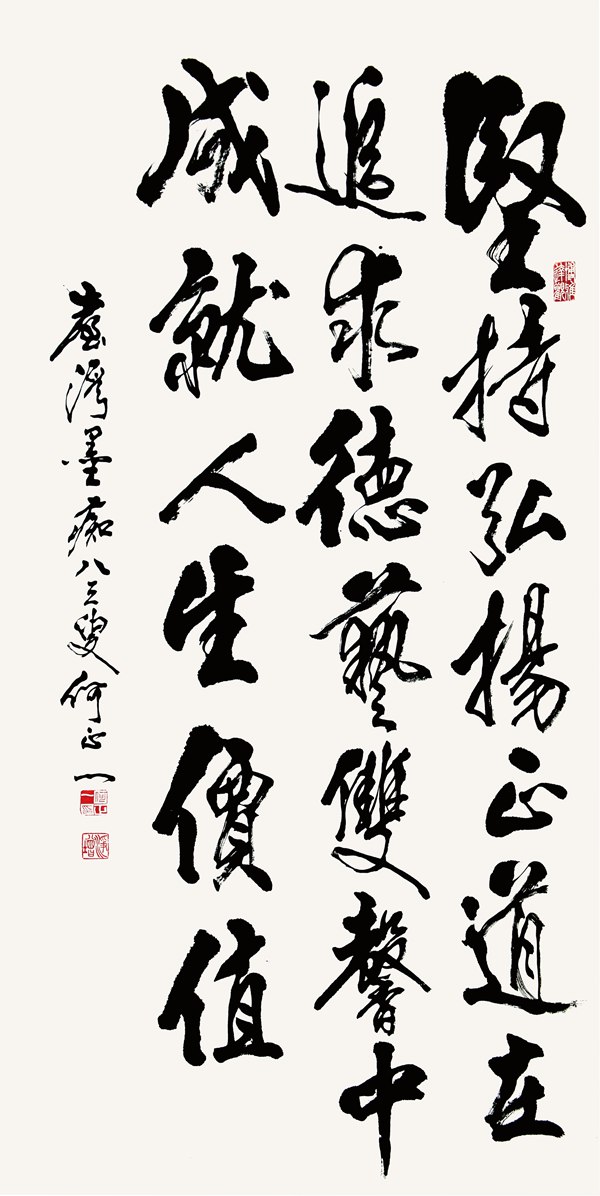 堅持弘揚正道在
追求德藝雙馨中
成就人生價值
臺灣墨痴八三叟何正一